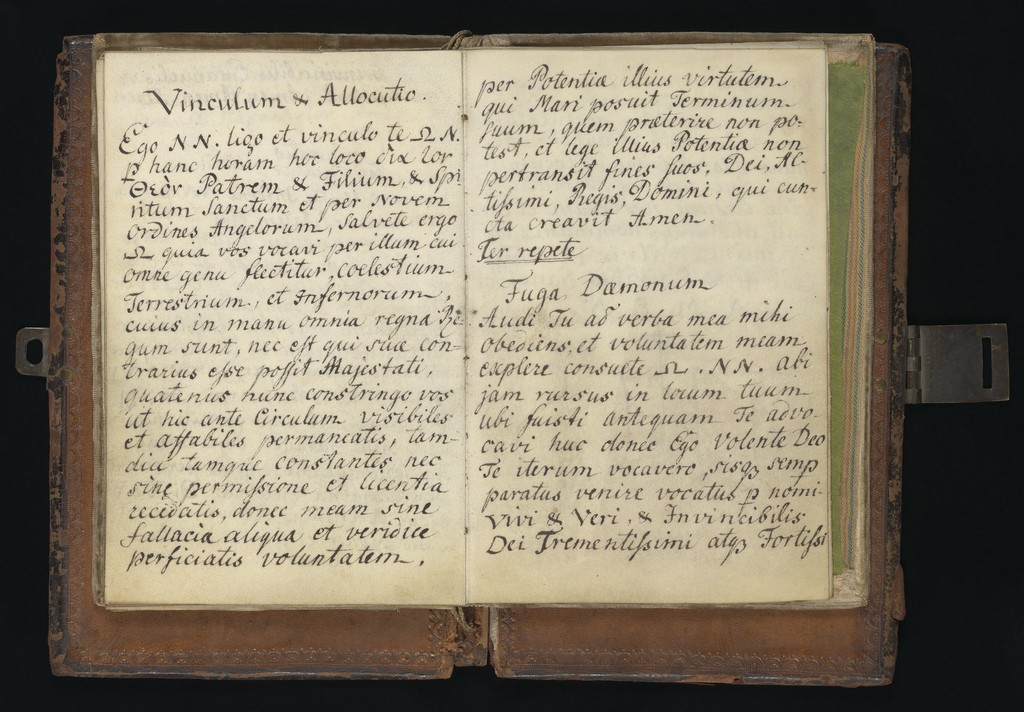 Vinculum & Allocutio.
Ego NN. ligo et vinculo te Ω N.
p hanc horam hoc loco
Θεὸν Patrem & Filium, & Spi
ritum Sanctum et per Novem
Ordines Angelorum, Salvete ergo
Ω quia vos vocavi per illum cui
omne genu flectitur, coelestium
Terrestrium, et Infernorum,
cuius in manu omnia regna Re=
gum sunt, nec est qui suae con=
trarius esse possit Majestati,
quatenus hunc constringo vos
ut hic ante Circulum visibiles
et affabiles permaneatis, tam-
diu tamque constantes nec
sine permissione et licentia
recedatis, donec meam sine
fallacia aliqua et veridice
perficiatis voluntatem.
per Potentiæ illius virtutem
qui Mari posuit Terminum
suum, quem præterire non po-
test, et lege illius Potentiæ non
pertransit fines suos, Dei, Al-
tissimi, Regis, Domini, qui cun-
cta creavit Amen.
Ter repete
Fuga Dæmonum
Audi Tu ad verba mea mihi
obediens, et voluntatem meam
explere consuete Ω. NN. abi
jam rursus in locum tuum
ubi fuisti antequam Te advo-
cavi huc donec Ego Volente Deo
Te iterum vocavero, sisqz semp
paratus venire vocatus p nomi-
Vivi & Veri, & Invincibilis
Dei Trementissimi atqz Fortissi